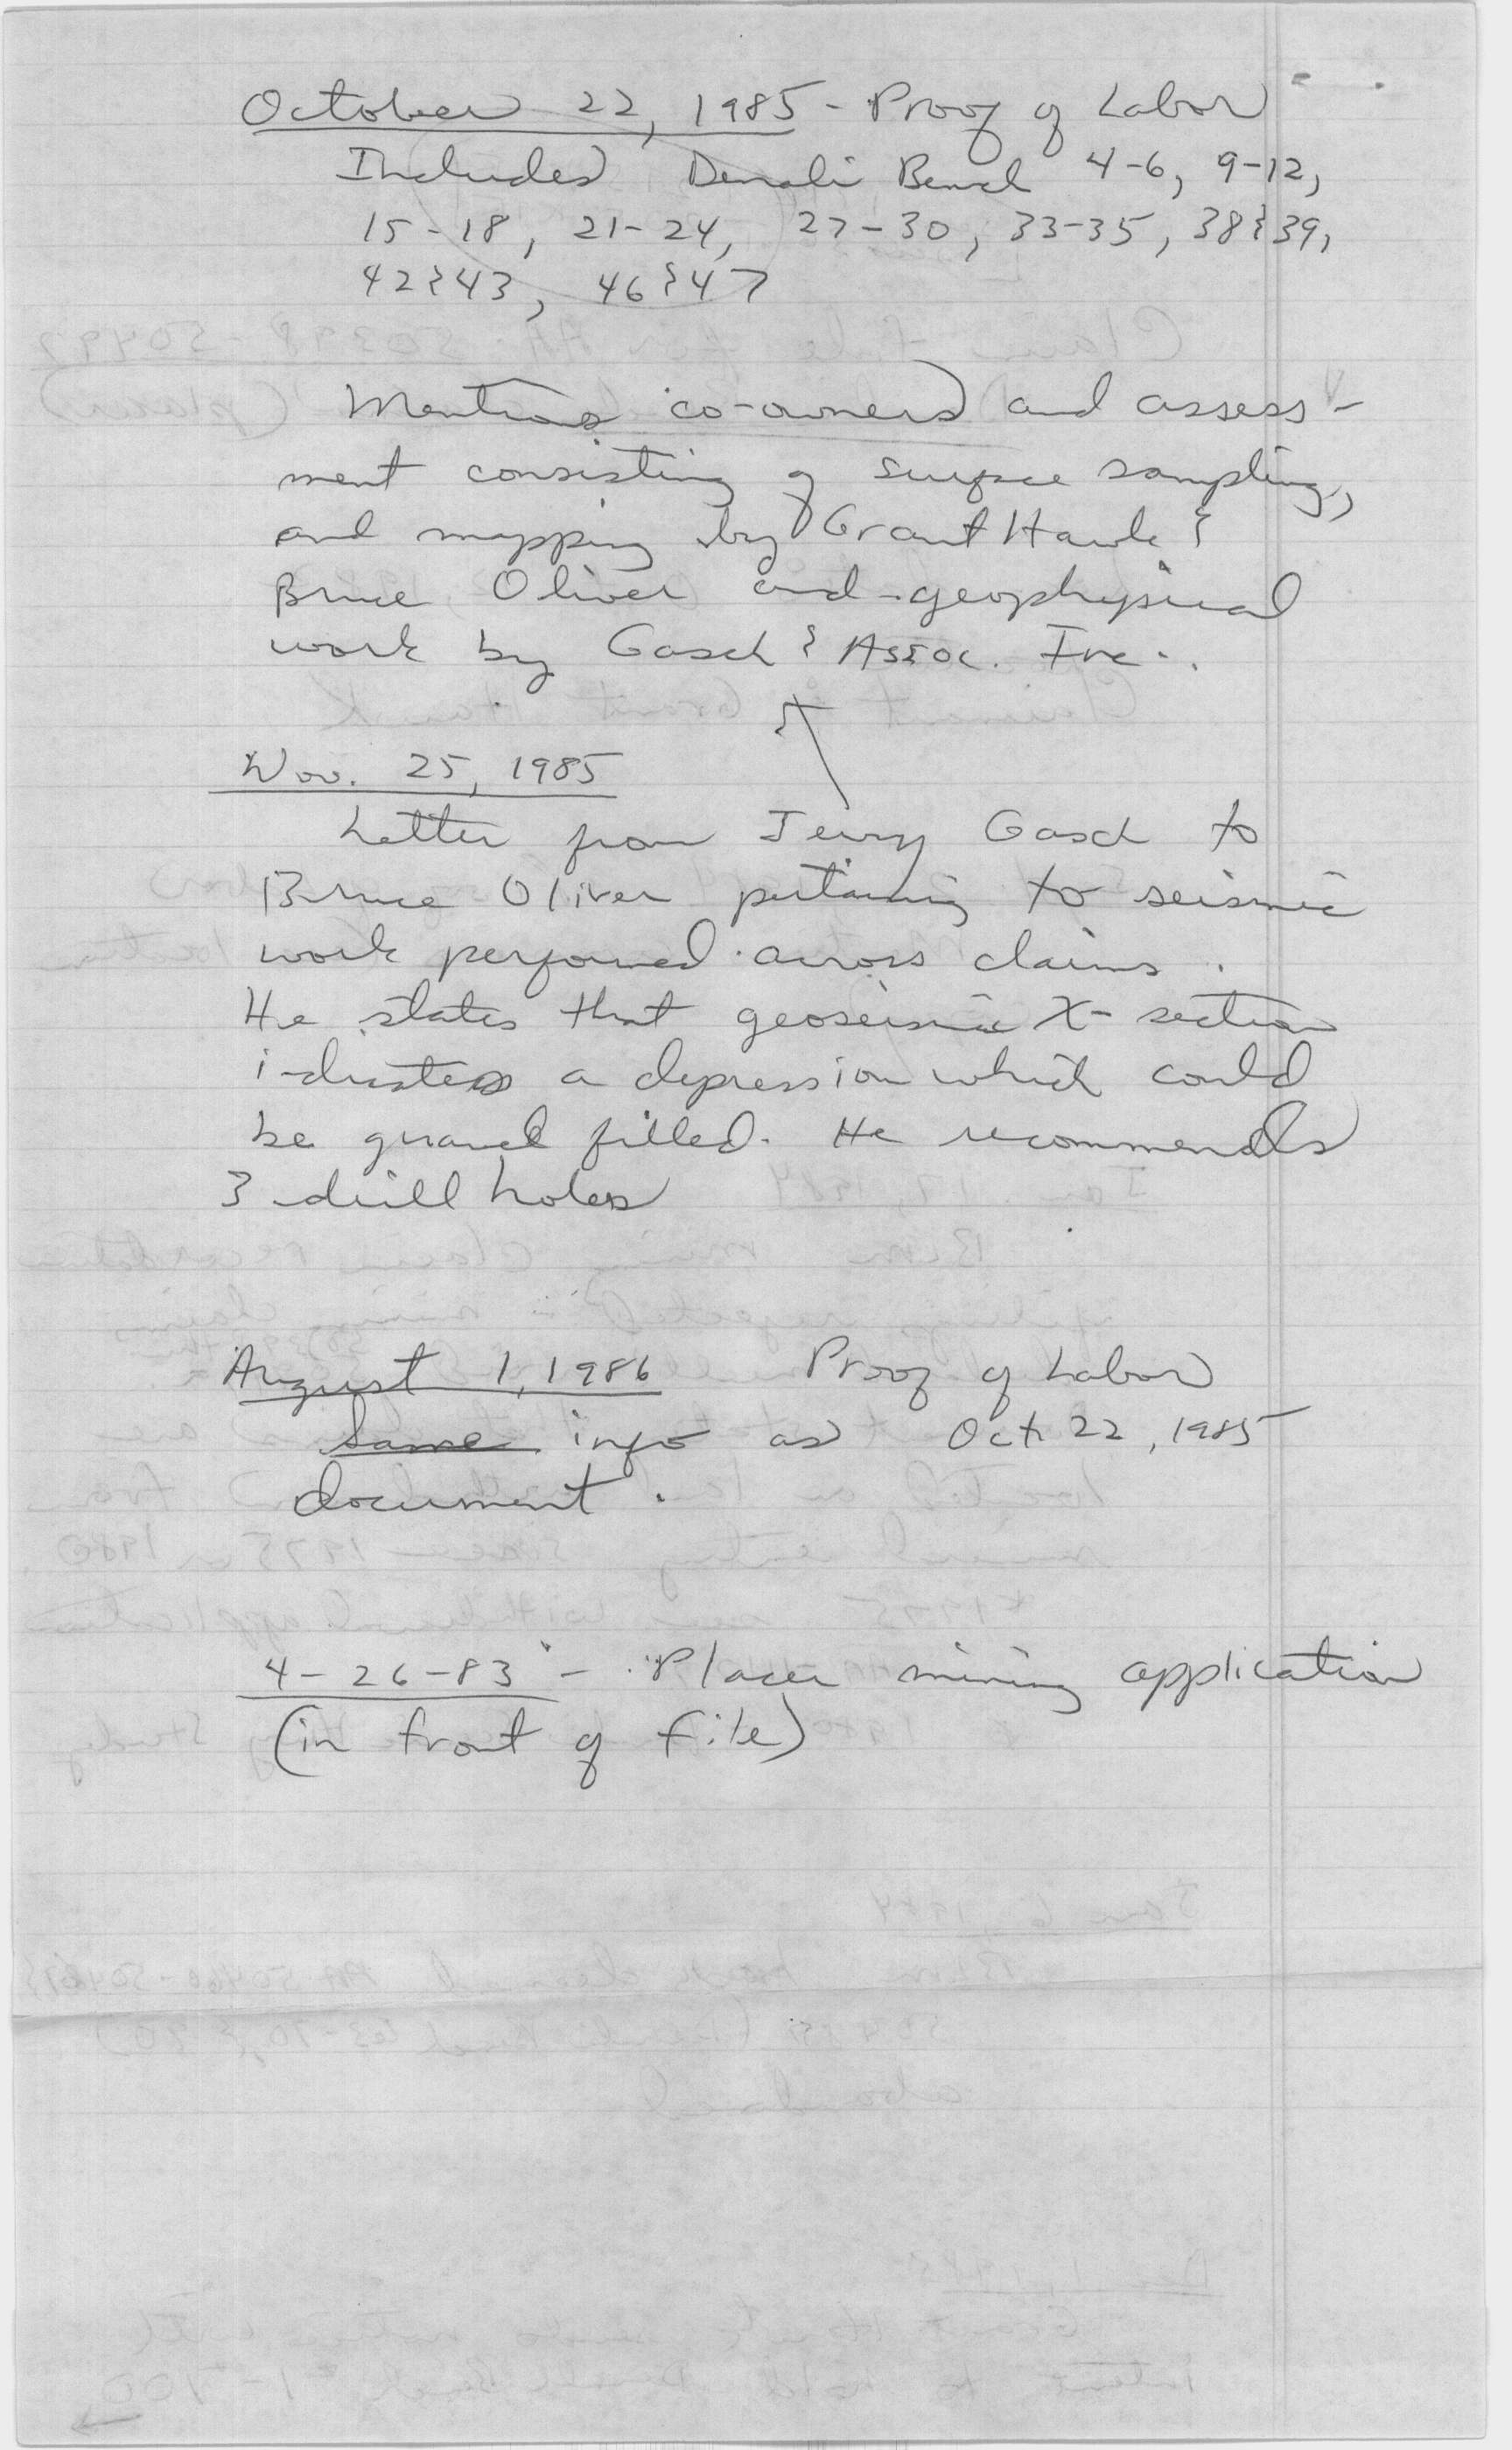 October 22, 1985 - Proof of Labor
Includes Denali Bench 4-6, 9-12,
15-18, 21-24, 27-30, 33-35, 38 & 39,
42 & 43, 46 & 47
Mentions co-owners and assess-
ment consisting of surface sampling,
and mapping by Grant Hawk &
Bruce Oliver and geophysical
work by Gasch & Assoc. Inc.
Nov. 25, 1985
Letter from Jerry Gasch to
Bruce Oliver pertaining to seismic
work performed across claims.
He states that geoseismic X-section
indicates a depression which could
be gravel filled. He recommends
3 drill holes
August 1, 1986 Proof of Labor
Same info as Oct 22, 1985
document.
4-26-83 - Placer mining application
(in front of file)